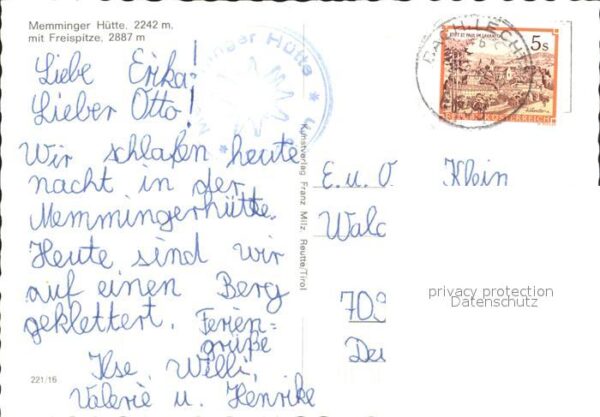 Memminger Hütte, 2242 m,
mit Freispitze, 2887 m
Liebe Erika!
Lieber Otto!
Wir schlafen heute
nacht in der
Memmingerhütte.
Heute sind wir
auf einen Berg
geklettert. Ferien-
grüße
Ilse, Willi,
Valerie u. Henrike
221/16
Kunstverlag Franz Milz, Reutte/Tirol
5s
REPUBLIK ÖSTERREICH
E. u. O Klein
Wald
privacy protection
Datenschutz